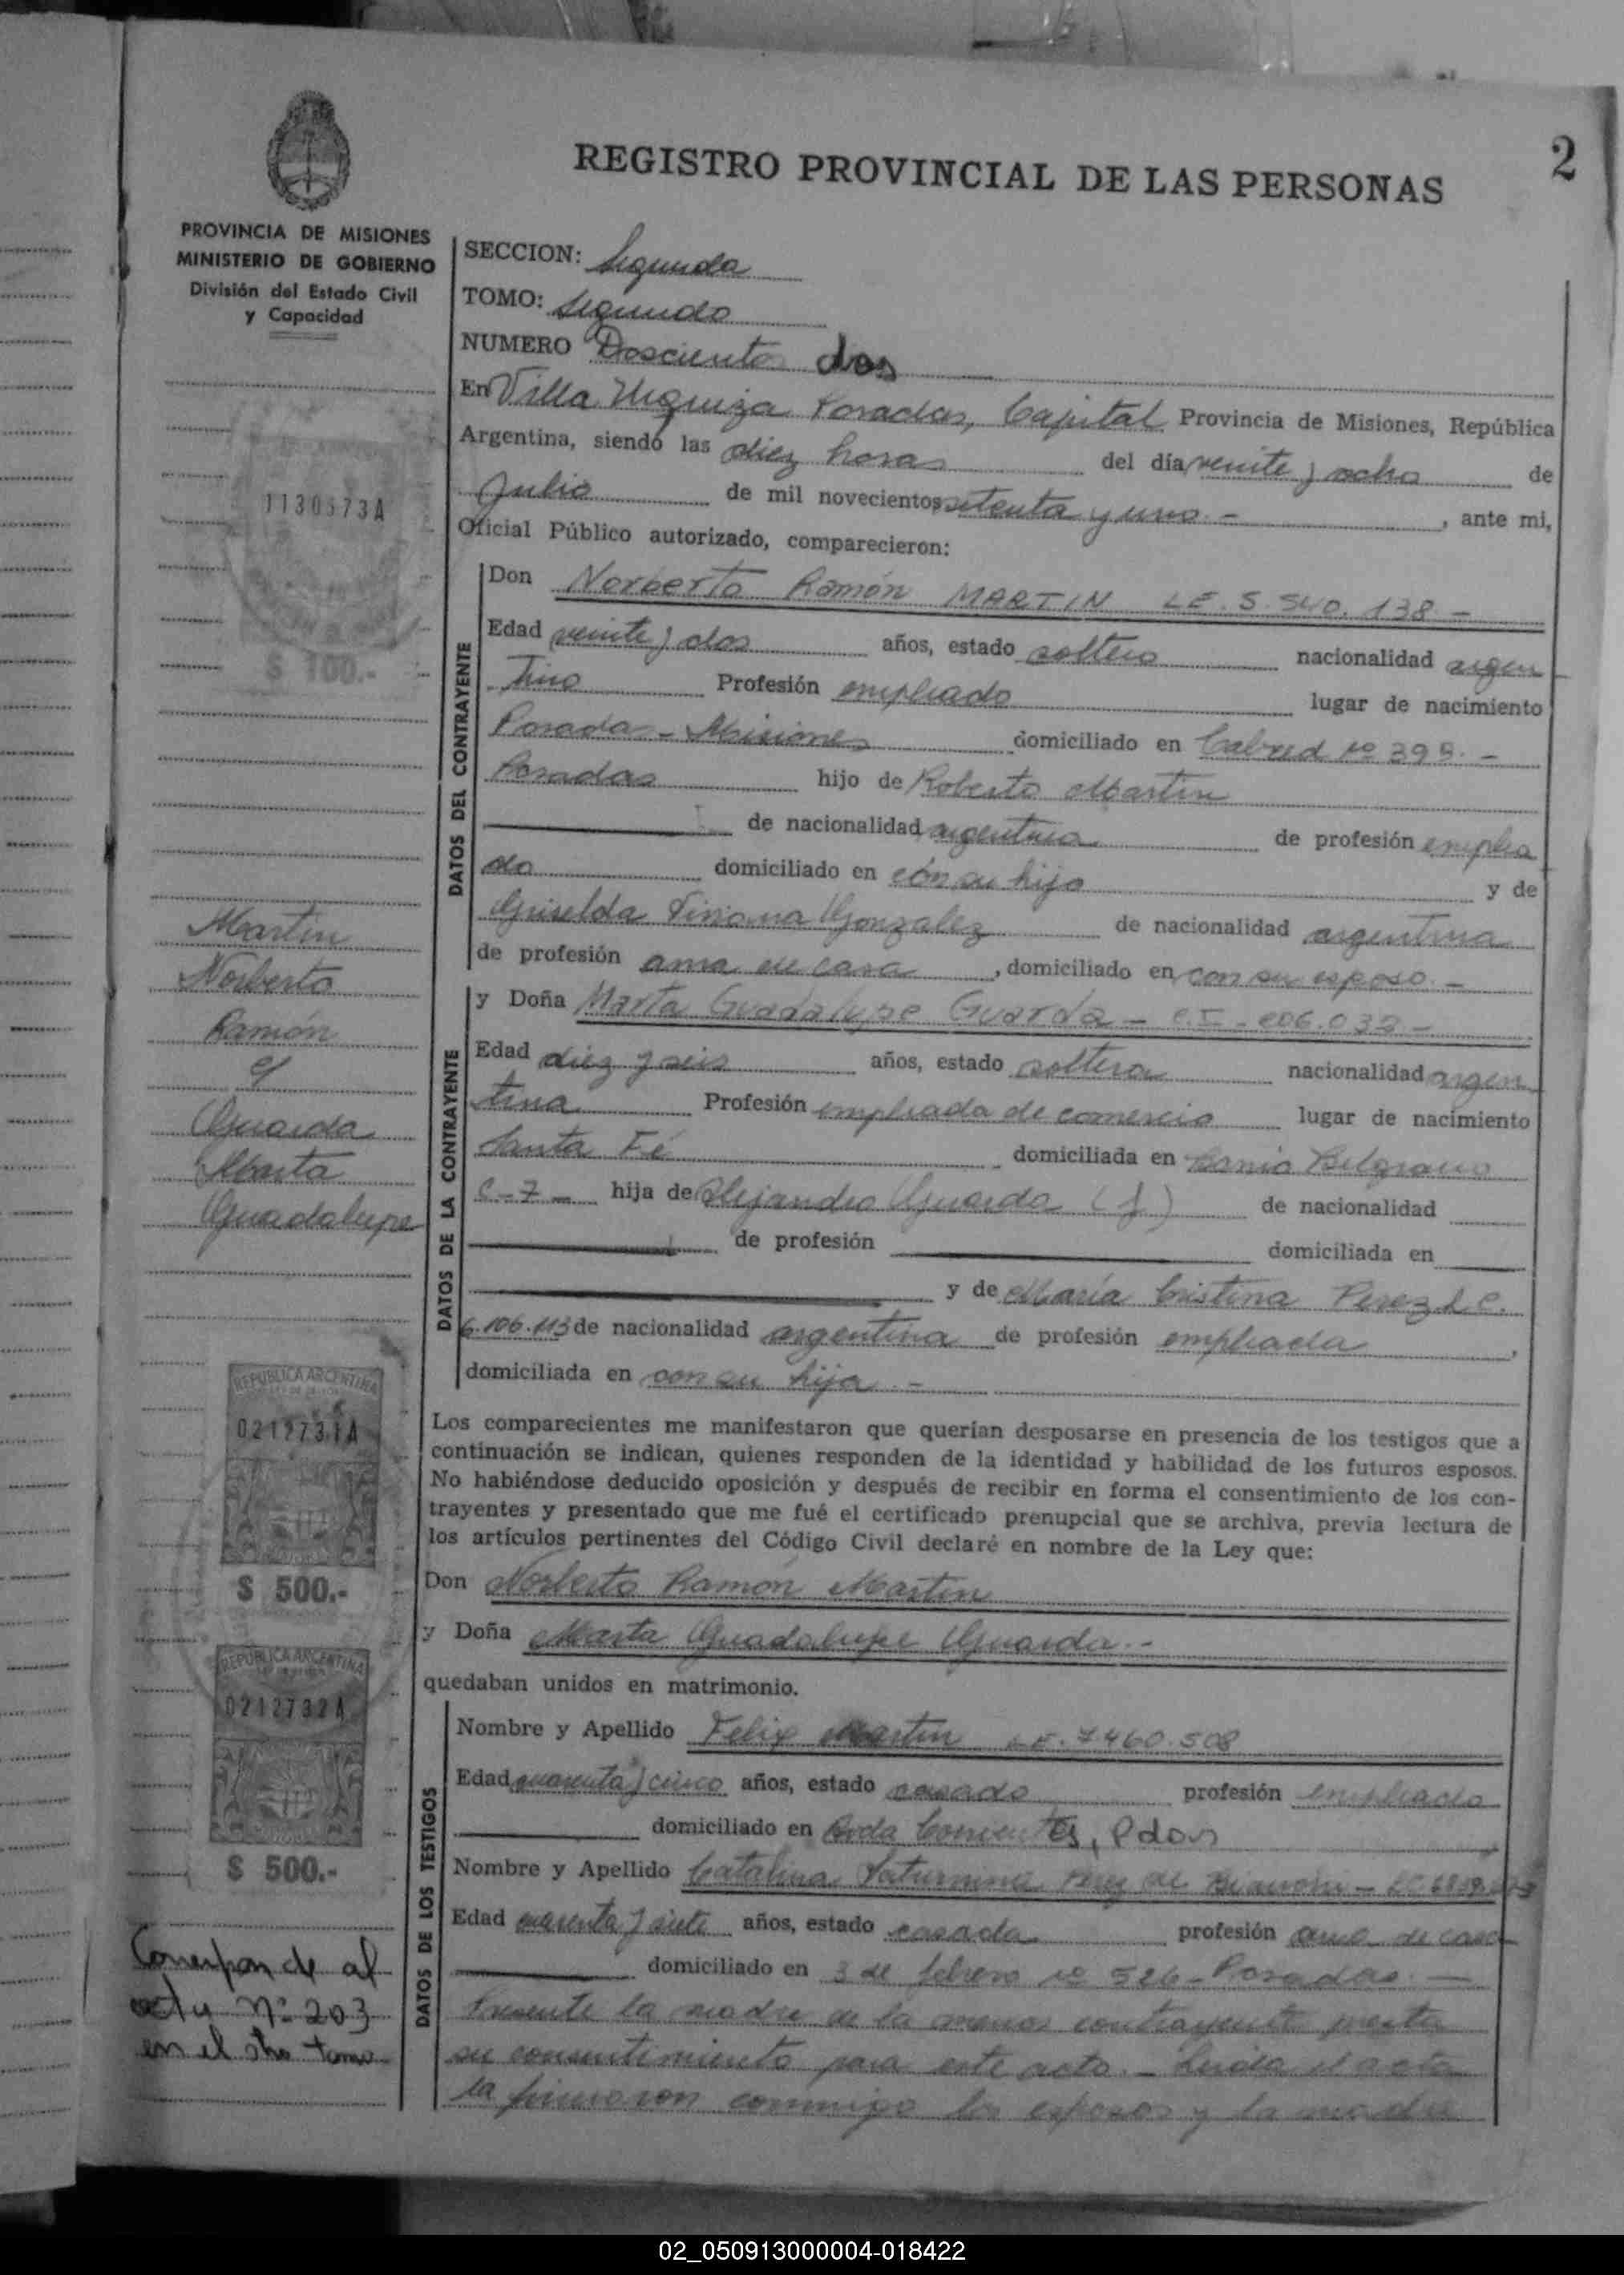 REGISTRO PROVINCIAL DE LAS PERSONAS
2
PROVINCIA DE MISIONES
MINISTERIO DE GOBIERNO
División del Estado Civil
y Capacidad
SECCION: Segunda
TOMO: Segundo
NUMERO Doscientos dos
En Villa Urquiza Posadas, Capital Provincia de Misiones, República
Argentina, siendo las diez horas del día veinte y ocho de
Julio de mil novecientos setenta y uno.- , ante mi,
Oficial Público autorizado, comparecieron:
DATOS DEL CONTRAYENTE
Don Norberto Ramón MARTIN LE. 5.540.138 -
Edad veinte y dos años, estado soltero nacionalidad argen
tino Profesión empleado lugar de nacimiento
Posadas - Misiones domiciliado en Cabred nº 393.-
Posadas hijo de Roberto Martin
de nacionalidad argentina de profesión emplea
do domiciliado en con su hijo y de
Griselda Gonzalez de nacionalidad argentina
de profesión ama de casa , domiciliado en con su esposo.-
DATOS DE LA CONTRAYENTE
y Doña Marta Guadalupe Guarda - C.I - 206.032 -
Edad diez y seis años, estado soltera nacionalidad argen
tina Profesión empleada de comercio lugar de nacimiento
Santa Fé domiciliada en Barrio Belgrano
C-7- hija de Alejandro Guarda (f) de nacionalidad
de profesión domiciliada en
y de María Cristina Perez L.C.
6.106.113 de nacionalidad argentina de profesión empleada ,
domiciliada en con su hija.-
Los comparecientes me manifestaron que querían desposarse en presencia de los testigos que a
continuación se indican, quienes responden de la identidad y habilidad de los futuros esposos.
No habiéndose deducido oposición y después de recibir en forma el consentimiento de los con-
trayentes y presentado que me fué el certificado prenupcial que se archiva, previa lectura de
los artículos pertinentes del Código Civil declaré en nombre de la Ley que:
Don Norberto Ramón Martin
y Doña Marta Guadalupe Guarda.-
quedaban unidos en matrimonio.
DATOS DE LOS TESTIGOS
Nombre y Apellido Felix Martin LE. 7.460.508
Edad cuarenta y cinco años, estado casado profesión empleado
domiciliado en Avda Corrientes, Pdas
Nombre y Apellido Catalina Saturnina Perez de
Edad cuarenta y siete años, estado casada profesión ama de casa
domiciliado en 3 de febrero nº 526 - Posadas.-
Presente la madre de la menor contrayente presta
su consentimiento para este acto.- Leída el acta
la firmaron conmigo los esposos y la madre
1130573A
$ 100.-
Martin
Norberto
Ramón
c/
Guarda
Marta
Guadalupe
REPUBLICA ARGENTINA
0212731A
$ 500.-
REPUBLICA ARGENTINA
0212732A
$ 500.-
Corresponde al
acta Nº 203
en el otro tomo
02_050913000004-018422